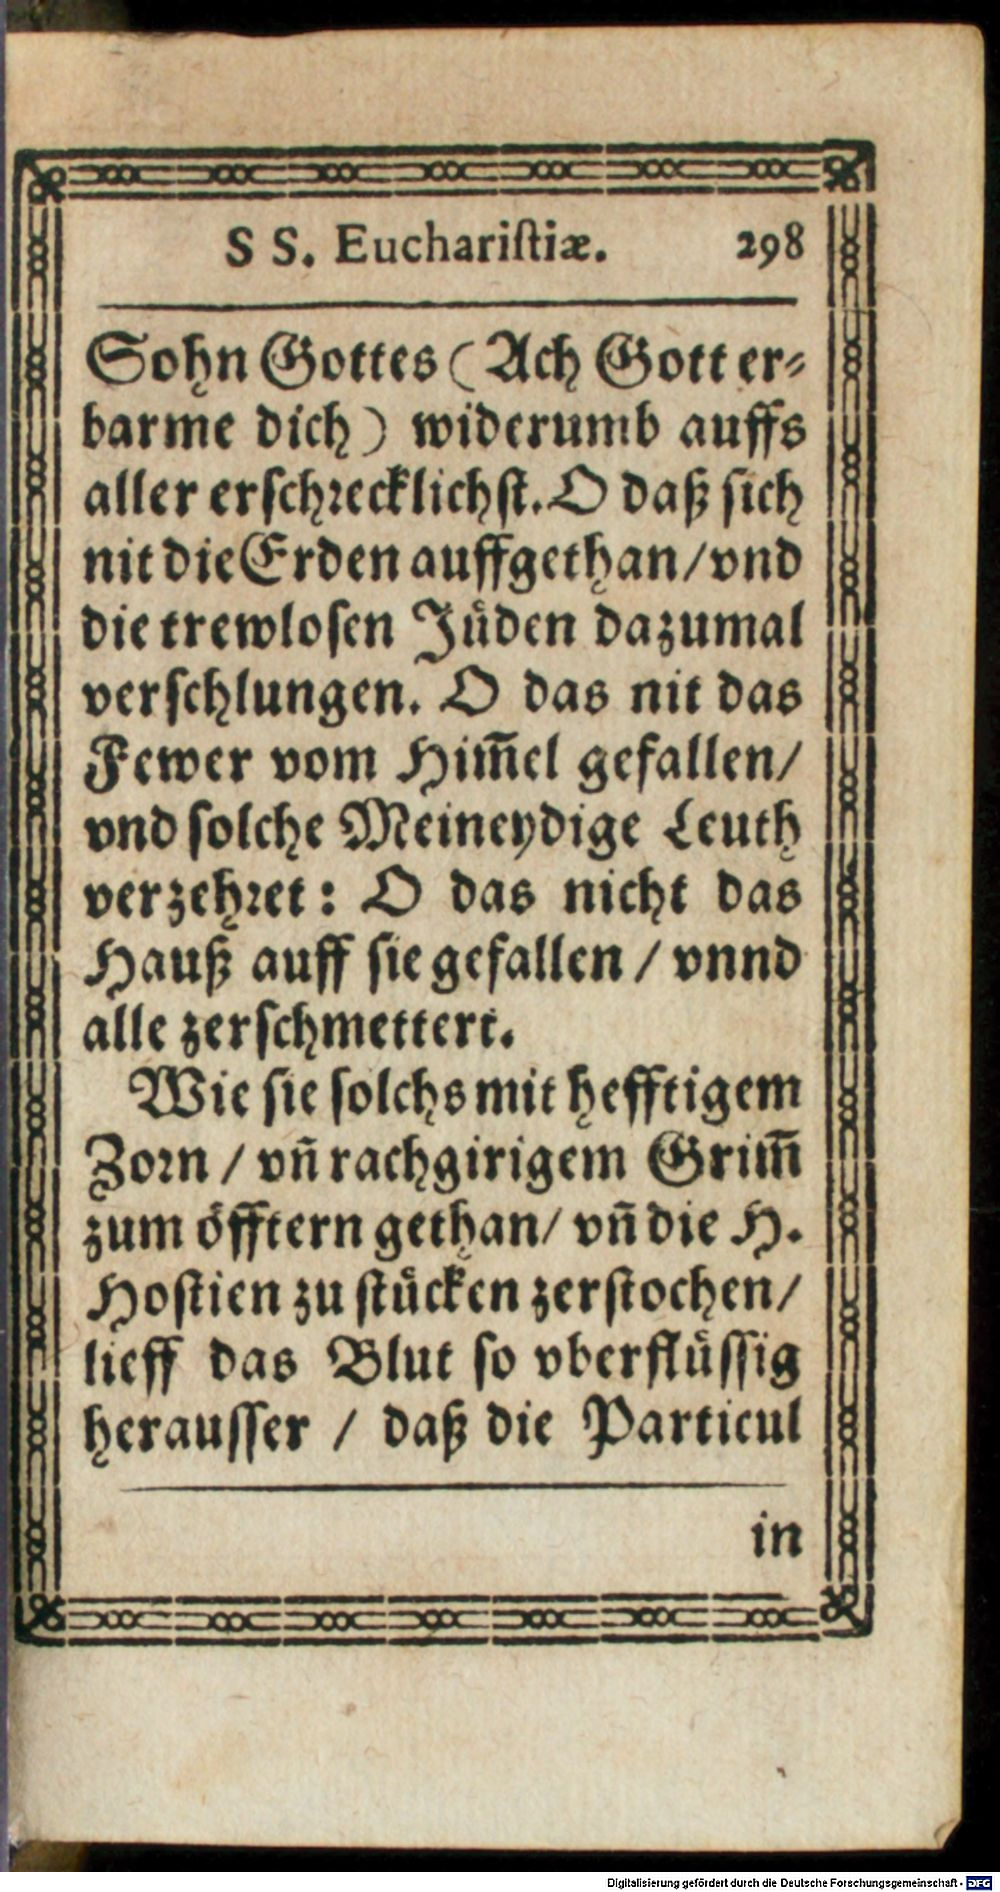 S S. Euchariſtiæ. 298
Sohn Gottes (Ach Gott er-
barme dich) widerumb auffs
aller erſchꝛecklichſt. O daß ſich
nit die Erden auffgethan/vnd
die trewloſen Juͤden dazumal
verſchlungen. O das nit das
Fewer vom Him̄el gefallen/
vnd ſolche Meineydige Leuth
verzehꝛet: O das nicht das
Hauß auff ſie gefallen / vnnd
alle zerſchmettert.
Wie ſie ſolchs mit hefftigem
Zoꝛn / vn̄ rachgirigem Grim̄
zum oͤfftern gethan/ vn̄ die H.
Hoſtien zu ſtuͤcken zerſtochen/
lieff das Blut ſo vberfluͤſſig
herauſſer / daß die Particul
in
Digitalisierung gefördert durch die Deutsche Forschungsgemeinschaft - DFG